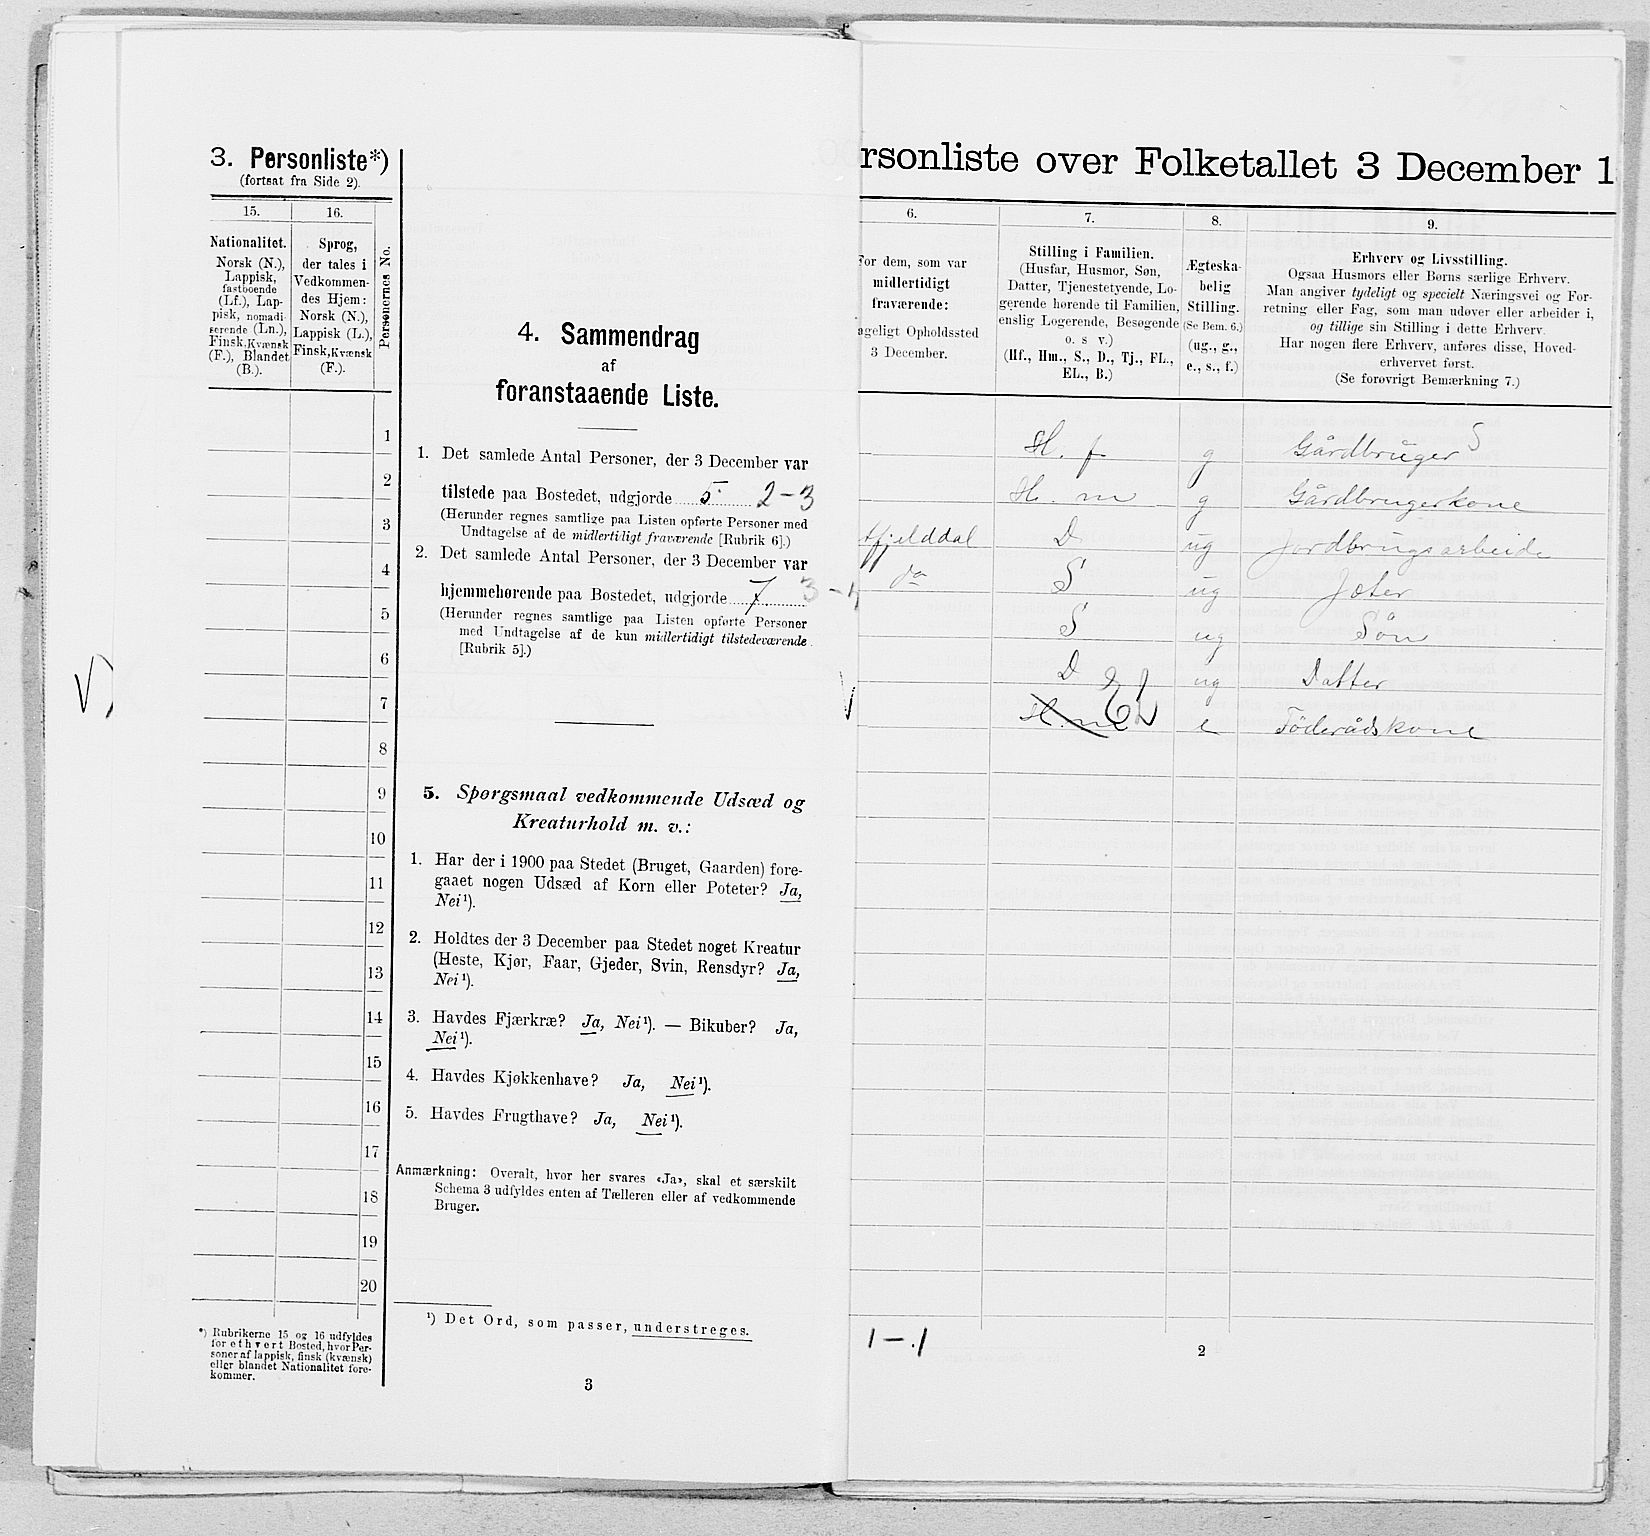 3. Personliste*)
(fortsat fra Side 2).
15.
16.
Personernes No.
Nationalitet.
Norsk (N.),
Lappisk,
fastboende
(Lf.), Lap-
pisk, nomadi-
serende (Ln.),
Finsk, Kvænsk
(F.), Blandet
(B.).
Sprog,
der tales i
Vedkommen-
des Hjem:
Norsk (N.),
Lappisk (L.),
Finsk, Kvænsk
(F.).
1
2
3
4
5
6
7
8
9
10
11
12
13
14
15
16
17
18
19
20
*) Rubrikerne 15 og 16 udfyldes
for ethvert Bosted, hvor Per-
soner af lappisk, finsk (kvænsk)
eller blandet Nationalitet fore-
kommer.
4. Sammendrag
af
foranstaaende Liste.
1. Det samlede Antal Personer, der 3 December var
tilstede paa Bostedet, udgjorde 5 2-3
(Herunder regnes samtlige paa Listen opførte Personer med
Undtagelse af de midlertidigt fraværende [Rubrik 6].)
2. Det samlede Antal Personer, der 3 December var
hjemmehørende paa Bostedet, udgjorde 7. 3-4
(Herunder regnes samtlige paa Listen opførte Personer
med Undtagelse af de kun midlertidigt tilstedeværende
[Rubrik 5].)
5. Spørgsmaal vedkommende Udsæd og
Kreaturhold m. v.:
1. Har der i 1900 paa Stedet (Bruget, Gaarden) fore-
gaaet nogen Udsæd af Korn eller Poteter? Ja,
Nei¹).
2. Holdtes der 3 December paa Stedet noget Kreatur
(Heste, Kjør, Faar, Gjeder, Svin, Rensdyr? Ja,
Nei¹).
3. Havdes Fjærkræ? Ja, Nei¹). — Bikuber? Ja,
Nei¹).
4. Havdes Kjøkkenhave? Ja, Nei¹).
5. Havdes Frugthave? Ja, Nei¹).
Anmærkning: Overalt, hvor her svares «Ja», skal et særskilt
Schema 3 udfyldes enten af Tælleren eller af vedkommende
Bruger.
¹) Det Ord, som passer, understreges.
3
rsonliste over Folketallet 3 December 1
6.
7.
8.
9.
For dem, som var
midlertidigt
fraværende:
ageligt Opholdssted
3 December.
Stilling i Familien.
(Husfar, Husmor, Søn,
Datter, Tjenestetyende, Lo-
gerende hørende til Familien,
enslig Logerende, Besøgende
o. s v.)
(Hf., Hm., S., D., Tj., FL.,
EL., B.)
Ægteska-
belig
Stilling.
(Se Bem. 6.)
(ug., g.,
e., s., f.)
Erhverv og Livsstilling.
Ogsaa Husmors eller Børns særlige Erhverv.
Man angiver tydeligt og specielt Næringsvei og For-
retning eller Fag, som man udøver eller arbeider i,
og tillige sin Stilling i dette Erhverv.
Har nogen flere Erhverv, anføres disse, Hoved-
erhvervet først.
(Se forøvrigt Bemærkning 7.)
H. f g Gårdbruger S
H. m g Gårdbrugerkone
tfjelddal D ug Jordbrugsarbeide
do S ug Jæter
S ug Søn
D ug Datter
H. m El e Föderådskone
1-1
2